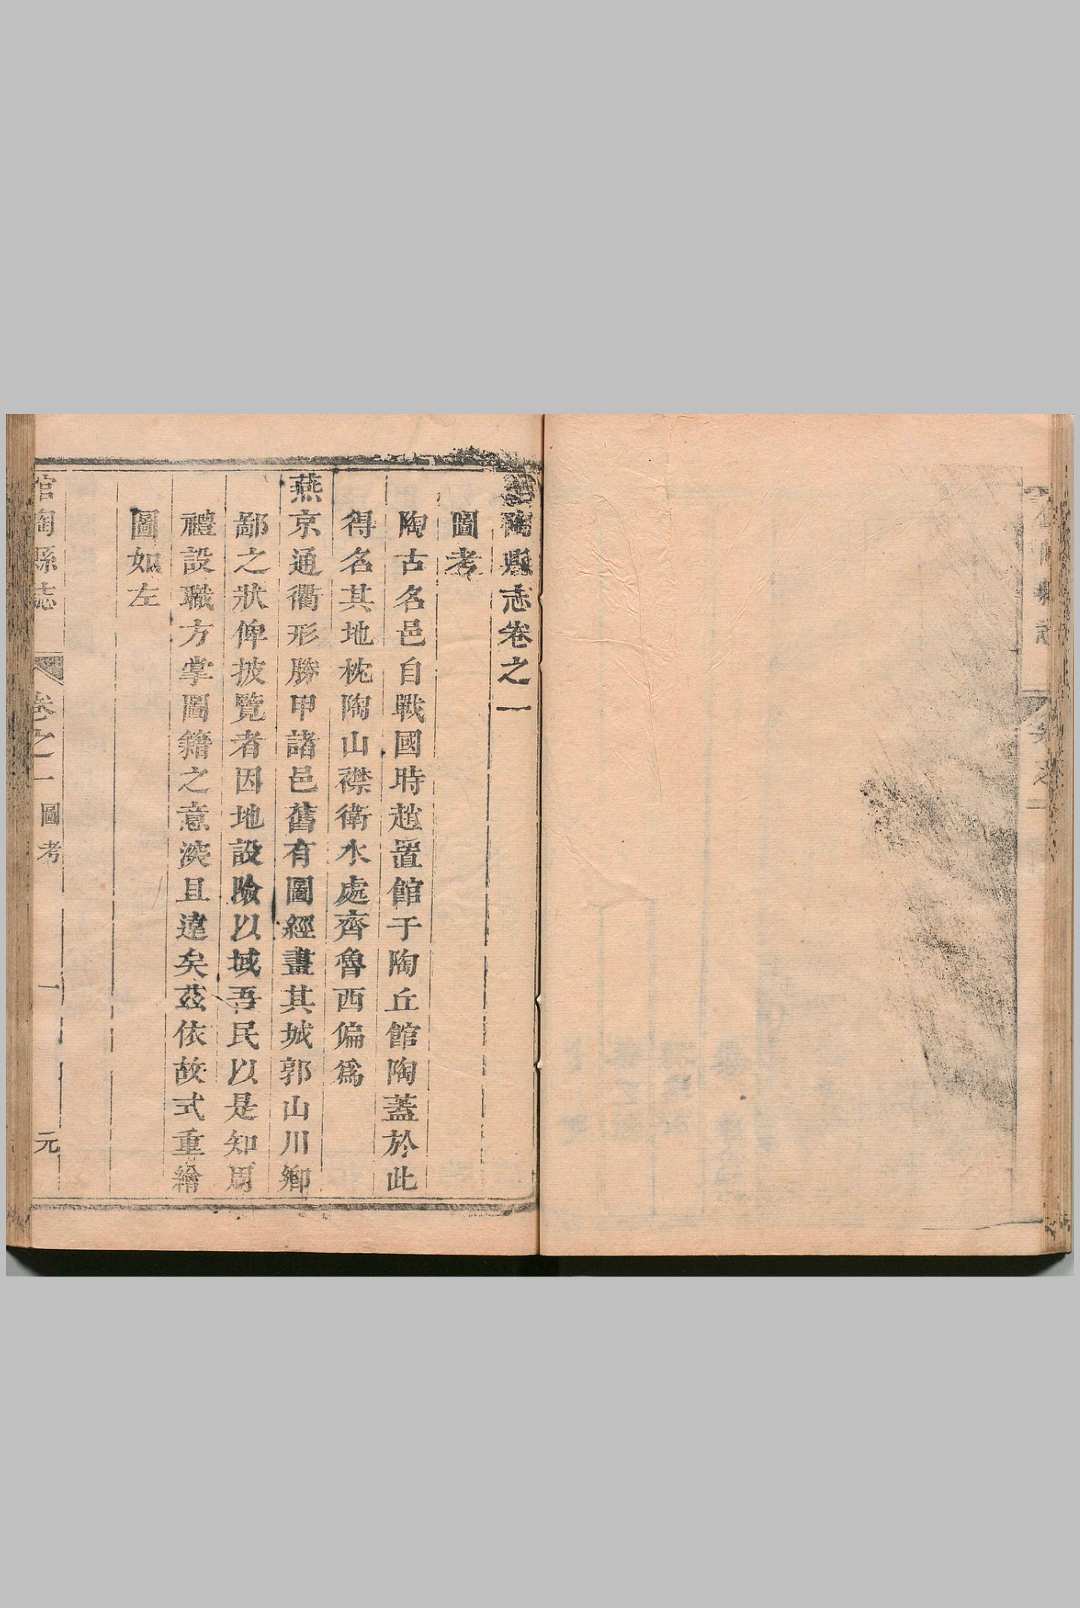 館陶縣志卷之一
圖考
陶古名邑自戰國時趙置館于陶丘館陶蓋於此
得名其地枕陶山襟衛水處齊魯西偏爲
燕京通衢形勝甲諸邑舊有圖經畫其城郭山川鄉
鄙之狀俾披覽者因地設險以域吾民以是知周
禮設職方掌圖籍之意深且遠矣茲依故式重繪
圖如左
館陶縣志 卷之一 圖考 一 元